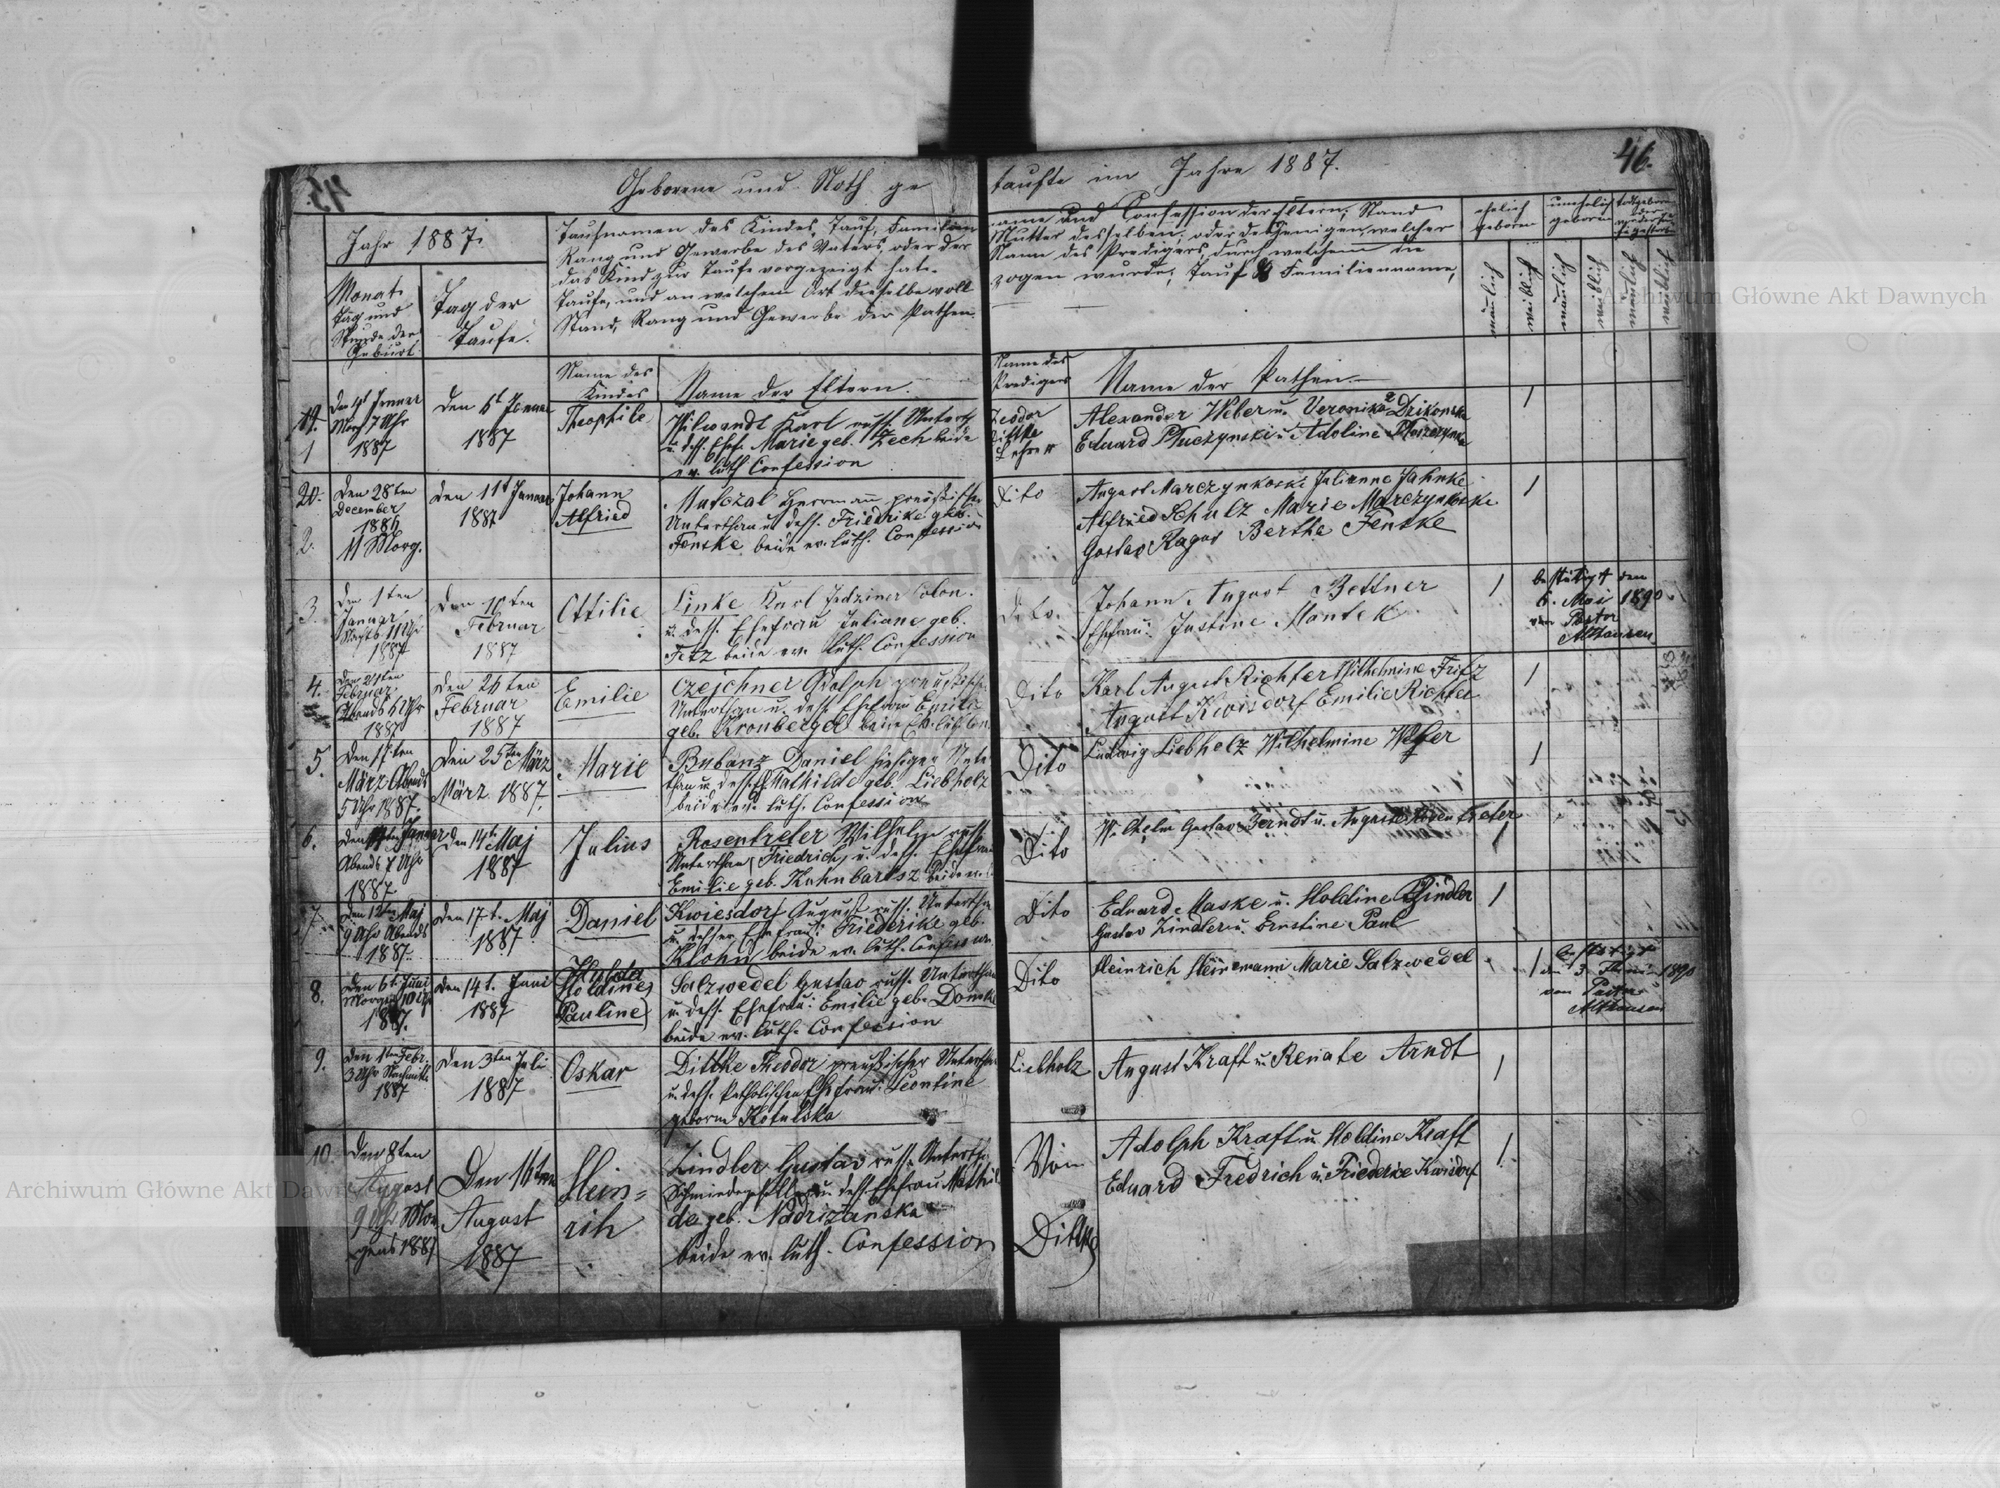 45.
Geborene und Noth ge
taufte im Jahre 1887.
46.
Jahr 1887.
Monat
Tag und
Stunde der
Geburt.
Tag der
Taufe.
Taufnamen des Kindes, Tauf, Familien
Rang und Gewerbe des Vaters oder der
das Kind zur Taufe vorgezeigt hat.
Taufe, und an welchem Ort dieselbe voll
Stand, Rang und Gewerbe der Pathen.
Name des
Kindes
Name der Eltern.
name und Confession der Eltern, Stand
Mutter desselben, oder desjenigen welcher
Name des Predigers, durch welchen die
zogen wurde, Tauf & Familienname,
Name des
Predigers
Name der Pathen.
ehelich
geboren
unehelich
geboren
männlich
weiblich
männlich
weiblich
männlich
weiblich
1
Morg 7 Uhr
1887
den 6t Januar
1887
Theophile
Hilwandt Karl russ. Untert
u. dess. Ehefr. Marie geb. Zech beide
ev. luth Confession
Teodor
Dittke
Lehrer
Alexander Weber u. Veronika
Eduard Pluczynski u. Adoline
1
20.
2.
den 28ten
December
1886
11 Morg.
den 11t Januar
1887
Johann
Alfried
Matczak Herrmann preußischer
Unterthan u. dess. Friedrike geb.
Fenske beide ev. luth. Confession
Dito
August Marczynkoski Julianne Jahnke
Alfried Schulz Marie Marczynkoske
Gustav Ragas Berthe Fenske
1
3.
Den 1ten
Januar
Nachts 11 Uhr
1887
Den 10ten
Februar
1887
Ottilie
Linke Karl Colon.
u. dess. Ehefrau Juliane geb.
Fetz beide ev. luth. Confession
Dito.
Johann August Bettner
Ehefrau: Justine Mantek
1
bestätigt den
6. Mai 1890
von Pastor
Althausen
4.
Den 21ten
Februar
Abends 6 Uhr
1887
Den 26ten
Februar
1887
Emilie
Czejchner Adolph preußischer
Unterthan u. dess. Ehefrau Emilie
geb. Kronberger beide Ev. luth. Con
Dito
Karl August Richter Wilhelmine Fritz
August Kwisdorf Emilie Richter
1
5.
März Abends
5 Uhr 1887.
Den 25ten März
März 1887.
Marie
Bubanz Daniel hiesiger Unter
than u. dess. Ef. Mathilde geb. Liebholz
beide ev. luth. Confession
Dito
Ludwig Liebholz Wilhelmine Weker
1
6.
Abends 7 Uhr
1887
Den 14t Maj
1887
Julius
Rosentreter Wilhelm russ.
Unterthan (Friedrich) u. dess. Ehefrau
Emilie geb. Kuhnbartsz beide ev.
Dito
Wilhelm Gustav Berndt u. Auguste Rosentreter
1
7.
Den 12ten Maj
9 Uhr Abends
1887.
Den 17t. Maj
1887
Daniel
Kwiesdorf August russ. Untertha
u. dessen Ehefrau: Friederike geb.
Klohn beide ev. luth. Confession.
Dito
Eduard Maske u. Holdine Zindler
Gustav Zindler u. Ernstine Paul
1
8.
Den 6t. Juni
Morgen 10 Uhr
1887.
Den 14t. Juni
1887
Hulda
Holdine
Pauline
Salzwedel Gustav russ. Unterthan
u. dess. Ehefrau: Emilie geb. Domke
beide ev. luth. Confession
Dito
Heinrich Heinemann Marie Salzwedel
1
bestätigt
den 3. Juni 1890
von Pastor
Althausen
9.
Den 1ten Febr.
3 Uhr Nachmitt.
1887
Den 3ten Juli
1887
Oskar
Dittke Theodor preußischer Unterthan
u. dess. katholischen Ehefrau: Leontine
geborne Kotulska
Liebholz
August Kraft u. Renate Arndt
1
10.
Den 8ten
August
9 Uhr Mor
gens 1887
Den 16ten
August
1887
Hein=
rih
Zindler Gustav russ. Untertha
Schmiedegeselle u. dess. Ehefrau Mathil
de geb. Nadrizanska
beide ev. luth. Confession
Von
Dittke
Adolph Kraft u. Holdine Kraft
Eduard Fredrich u. Friederice Kwisdorf
1.
Archiwum Główne Akt Dawnych
Archiwum Główne Akt Dawnych